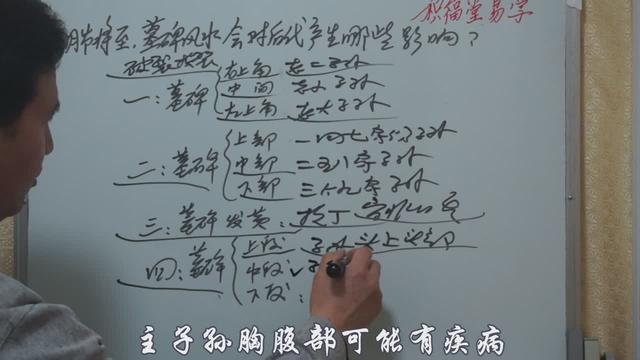 积福堂易学
节将至,墓碑风水会对后代产生哪些影响?
破裂
右上角 主二子孙
一:墓碑 中间 主小子孙
左上角 主大子孙
上部 一四七房子孙
二:墓碑 中部 二五八房子孙
下部 三六九房子孙
三:墓碑发黄:
四:墓碑 上段 子孙头上
中段 子
下段:
主子孙胸腹部可能有疾病